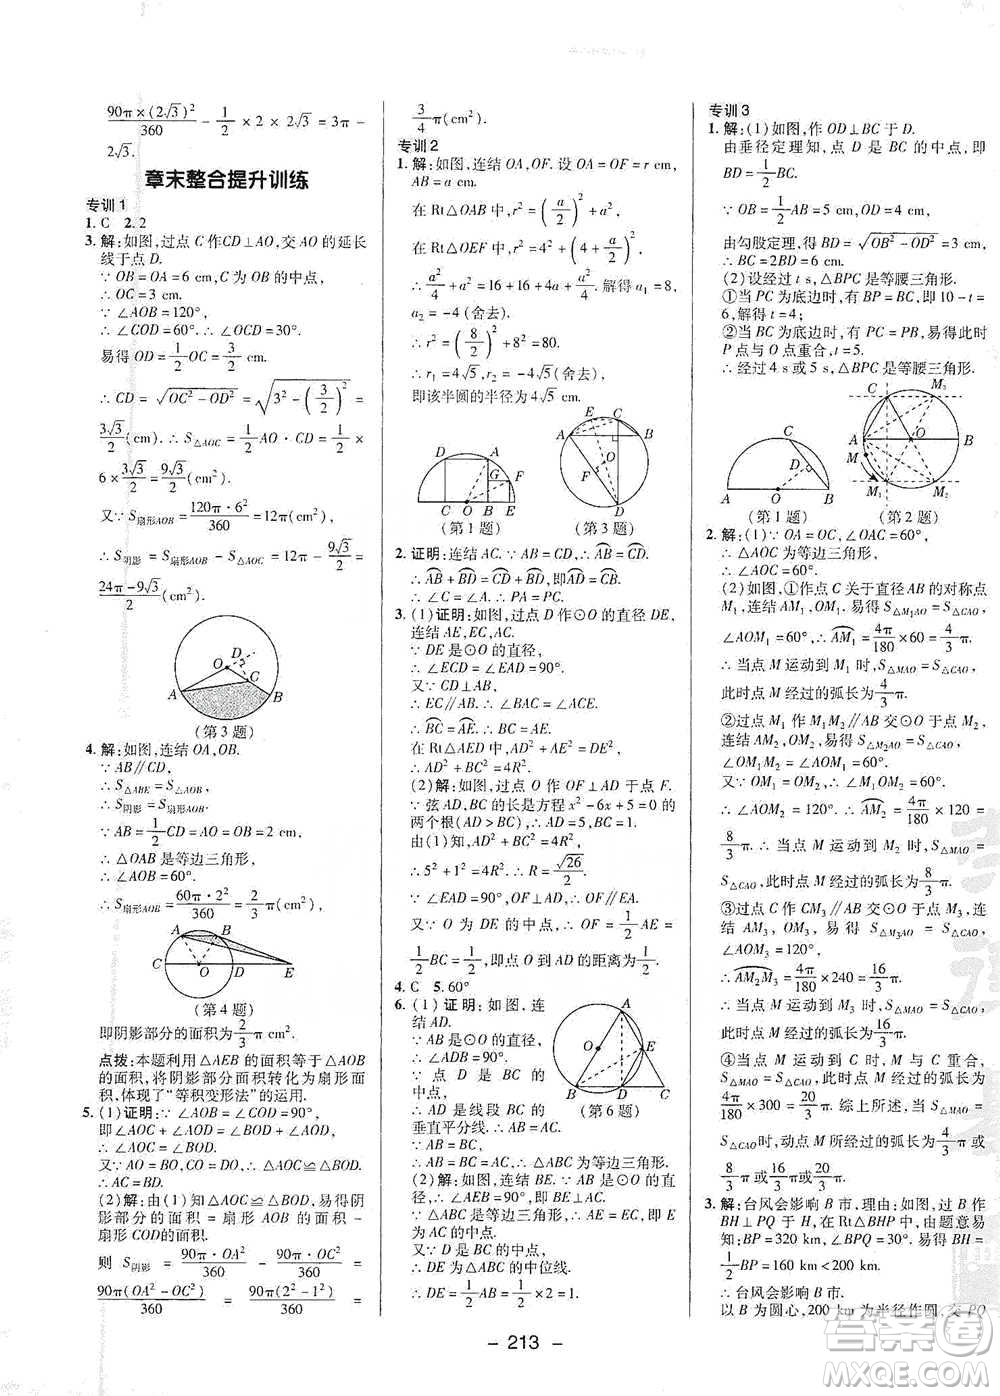 90π×(2√3)²/360 − 1/2 ×2×2√3 = π −
2√3.
章末整合提升训练
专训1
1. C 2. 2
3. 解:如图,过点C作CD⊥AO,交AO的延长
线于点D.
∵OB=OA=6 cm,C为OB的中点,
∴OC=3 cm.
∵∠AOB=120°,
∴∠COD=60°.∴∠OCD=30°.
易得OD=1/2 OC=3/2 cm.
∴CD=√(OC²−OD²)=√(3²−(3/2)²)=
3√3/2(cm).∴S△AOC=1/2 AO·CD=1/2×
6×3√3/2=9√3/2(cm²).
又∵S扇形AOB=120π·6²/360=12π(cm²),
∴S阴影=S扇形AOB−S△AOC=12π−9√3/2=
(24π−9√3)/2(cm²).
O D C A B
(第3题)
4. 解:如图,连结OA,OB.
∵AB∥CD,
∴S△ABE=S△AOB.
∴S阴影=S扇形AOB.
∵AB=1/2 CD=AO=OB=2 cm,
∴△OAB是等边三角形.
∴∠AOB=60°.
∴S扇形AOB=60π·2²/360=2/3 π(cm²).
A B C O D E
(第4题)
即阴影部分的面积为2/3 π cm².
点拨:本题利用△AEB的面积等于△AOB
的面积,将阴影部分面积转化为扇形面
积,体现了“等积变形法”的运用.
5. (1)证明:∵∠AOB=∠COD=90°,
即∠AOC+∠AOD=∠BOD+∠AOD,
∴∠AOC=∠BOD.
又∵AO=BO,CO=DO,∴△AOC≌△BOD.
∴AC=BD.
(2)解:由(1)知△AOC≌△BOD,易得阴
影部分的面积=扇形AOB的面积−
扇形COD的面积.
则 S阴影=90π·OA²/360−90π·OC²/360=
90π(OA²−OC²)/360=90π(2²−1²)/360=
3/4 π(cm²).
专训2
1. 解:如图,连结OA,OF.设OA=OF=r cm,
AB=a cm.
在Rt△OAB中,r²=(a/2)²+a²,
在Rt△OEF中,r²=4²+(4+a/2)²,
∴a²/4+a²=16+16+4a+a²/4.解得a₁=8,
a₂=−4(舍去).
∴r²=(8/2)²+8²=80.
∴r₁=4√5,r₂=−4√5(舍去),
即该半圆的半径为4√5 cm.
D A G F C O B E
(第1题)
E C A B O F D
(第3题)
2. 证明:连结AC.∵AB=CD,∴AB=CD.
∴AB+BD=CD+BD,即AD=CB.
∴∠C=∠A.∴PA=PC.
3. (1)证明:如图,过点D作⊙O的直径DE,
连结AE,EC,AC.
∵DE是⊙O的直径,
∴∠ECD=∠EAD=90°.
又∵CD⊥AB,
∴EC∥AB.∴∠BAC=∠ACE.
∴BC=AE.∴BC=AE.
在Rt△AED中,AD²+AE²=DE²,
∴AD²+BC²=4R².
(2)解:如图,过点O作OF⊥AD于点F.
∵弦AD,BC的长是方程x²−6x+5=0的
两个根(AD>BC),∴AD=5,BC=1.
由(1)知,AD²+BC²=4R²,
∴5²+1²=4R².∴R=√26/2.
∵∠EAD=90°,OF⊥AD,∴OF∥EA.
又∵O为DE的中点,∴OF=1/2 AE=
1/2 BC=1/2,即点O到AD的距离为1/2.
4. C 5. 60°
6. (1)证明:如图,连
结AD.
∵AB是⊙O的直径,
∴∠ADB=90°.
∵点D是BC的
中点,
∴AD是线段BC的
垂直平分线.
∴AB=AC.
∵AB=BC,
∴AB=BC=AC.∴△ABC为等边三角形.
A O E B D C
(第6题)
(2)解:如图,连结BE.∵AB是⊙O的直
径,∴∠AEB=90°.∴BE⊥AC.
∵△ABC是等边三角形,
∴AE=EC,即E为AC的中点.
又∵D是BC的中点,
∴DE是△ABC的中位线.
∴DE=1/2 AB=1/2×2=1.
专训3
1. 解:(1)如图,作OD⊥BC于D.
由垂径定理知,点D是BC的中点,即
BD=1/2 BC.
∵OB=1/2 AB=5 cm,OD=4 cm,
由勾股定理,得BD=√(OB²−OD²)=3 cm,
∴BC=2BD=6 cm.
(2)设经过t s,△BPC是等腰三角形.
①当PC为底边时,有BP=BC,即10−t=
6,解得t=4;
②当BC为底边时,有PC=PB,易得此时
P点与O点重合,t=5.
∴经过4 s或5 s,△BPC是等腰三角形.
C D A O B
(第1题)
C M₃ A O B M M₁ M₂
(第2题)
2. 解:(1)∵OA=OC,∠OAC=60°,
∴△AOC为等边三角形.
∴∠AOC=60°.
(2)如图,①作点C关于直径AB的对称点
M₁,连结AM₁,OM₁.易得S△M₁AO=S△CAO,
∠AOM₁=60°,∴AM₁=4π/180×60=4/3 π.
∴当点M运动到M₁时,S△MAO=S△CAO,
此时点M经过的弧长为4/3 π.
②过点M₁作M₁M₂∥AB交⊙O于点M₂,
连结AM₂,OM₂,易得S△M₂AO=S△CAO,
∠OM₁M₂=60°.
又∵OM₁=OM₂,∴∠M₁OM₂=60°.
∴∠AOM₂=120°.∴AM₂=4π/180×120=
8/3 π.∴当点M运动到M₂时,S△MAO=
S△CAO,此时点M经过的弧长为8/3 π.
③过点C作CM₃∥AB交⊙O于点M₃,连
结AM₃,OM₃,易得S△M₃AO=S△CAO,
∠AOM₃=120°,
∴AM₂M₃=4π/180×240=16/3 π.
∴当点M运动到M₃时,S△MAO=S△CAO,
此时点M经过的弧长为16/3 π.
④当点M运动到C时,M与C重合,
S△MAO=S△CAO,此时点M经过的弧长为
4π/180×300=20/3 π.综上所述,当S△MAO=
S△CAO时,动点M所经过的弧长为4/3 π或
8/3 π或16/3 π或20/3 π.
3. 解:台风会影响B市.理由:如图,过B作
BH⊥PQ于H,在Rt△BHP中,由题意易
知:BP=320 km,∠BPQ=30°.易得BH=
1/2 BP=160 km<200 km.
∴台风会影响B市.
以B为圆心,200 km为半径作圆,交PQ
- 213 -
答案圈
MXQE.COM